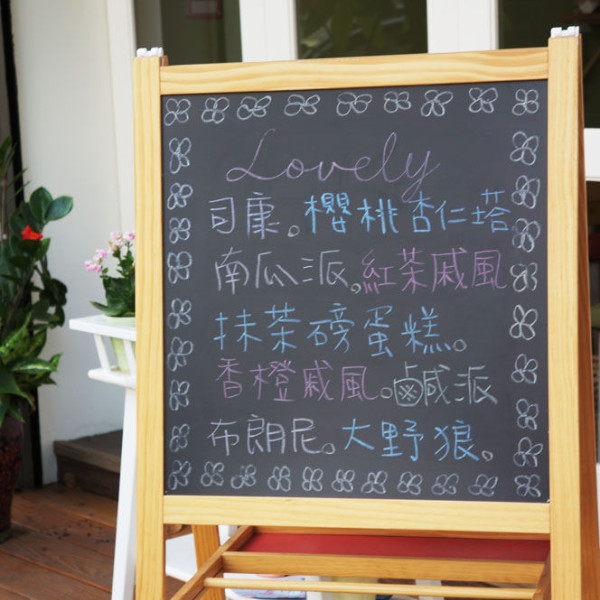 Lovely
司康。櫻桃杏仁塔
南瓜派。紅茶戚風
抹茶磅蛋糕。
香橙戚風。鹹派
布朗尼。大野狼。